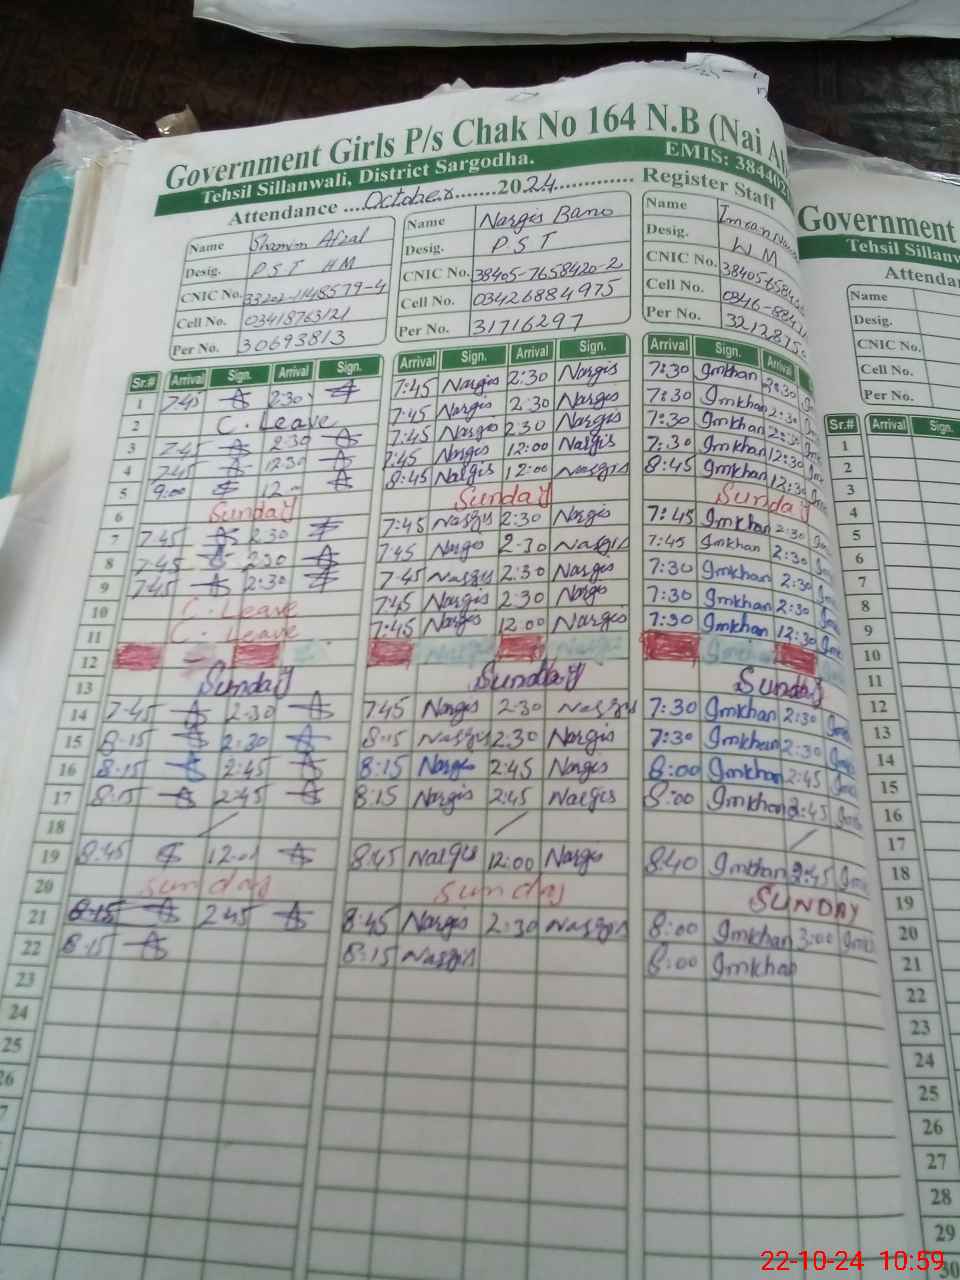 Government Girls P/s Chak No 164 N.B (Nai
Tehsil Sillanwali, District Sargodha. EMIS: 384402
Attendance ....October.......2024............. Register Staff
Name Shamim Afzal Name Nargis Bano Name Imran
Desig. P.S.T HM Desig. P S T Desig. W M
CNIC No. CNIC No. 38405-7658420-2 CNIC No.
Cell No. 03418763121 Cell No. 03426884975 Cell No.
Per No. 30693813 Per No. 31716297 Per No.
Sr.# Arrival Sign. Arrival Sign. Arrival Sign. Arrival Sign. Arrival Sign. Arrival
1 7:45 2:30 7:45 Nargis 2:30 Nargis 7:30 Imkhan 2:30
2 C. Leave 7:45 Nargis 2:30 Nargis 7:30 Imkhan 2:30
3 7:45 2:30 7:45 Nargis 2:30 Nargis 7:30 Imkhan 2:30
4 7:45 12:30 7:45 Nargis 12:00 Nargis 7:30 Imkhan 12:30
5 9:00 12:00 8:45 Nargis 12:00 Nargis 8:45 Imkhan 12:30
6 Sunday Sunday Sunday
7 7:45 2:30 7:45 Nargis 2:30 Nargis 7:45 Imkhan 2:30
8 7:45 2:30 7:45 Nargis 2:30 Nargis 7:45 Imkhan 2:30
9 7:45 2:30 7:45 Nargis 2:30 Nargis 7:30 Imkhan 2:30
10 C. Leave 7:45 Nargis 2:30 Nargis 7:30 Imkhan 2:30
11 C. Leave 7:45 Nargis 12:00 Nargis 7:30 Imkhan 12:30
12
13 Sunday Sunday Sunday
14 7:45 2:30 7:45 Nargis 2:30 Nargis 7:30 Imkhan 2:30
15 8:15 2:30 8:15 Nargis 2:30 Nargis 7:30 Imkhan 2:30
16 8:15 2:45 8:15 Nargis 2:45 Nargis 8:00 Imkhan 2:45
17 8:15 2:45 8:15 Nargis 2:45 Nargis 8:00 Imkhan 2:45
18
19 8:45 12:00 8:45 Nargis 12:00 Nargis 8:40 Imkhan 2:45
20 Sunday Sunday SUNDAY
21 8:15 2:45 8:45 Nargis 2:30 Nargis 8:00 Imkhan 3:00
22 8:15 8:15 Nargis 8:00 Imkhan
23
24
25
26
Government
Tehsil Sillanw
Attendan
Name
Desig.
CNIC No.
Cell No.
Per No.
Sr.# Arrival Sign.
1
2
3
4
5
6
7
8
9
10
11
12
13
14
15
16
17
18
19
20
21
22
23
24
25
26
27
28
29
30
22-10-24 10:59